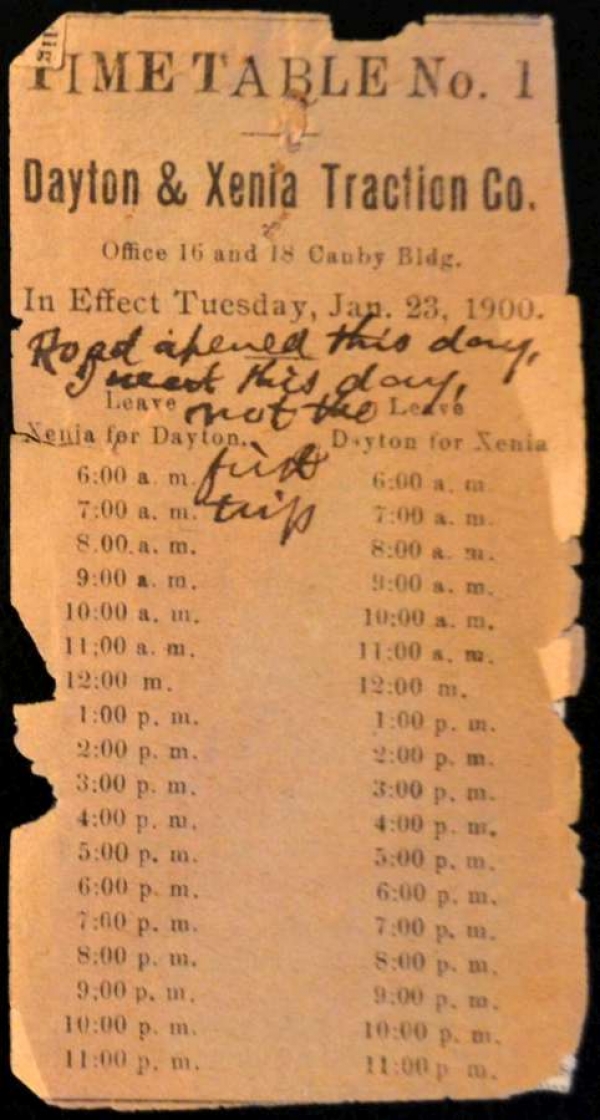 TIME TABLE No. 1
Dayton & Xenia Traction Co.
Office 16 and 18 Canby Bldg.
In Effect Tuesday, Jan. 23, 1900.
Road opened this day,
I went this day,
not the
first
trip
Leave Leave
Xenia for Dayton. Dayton for Xenia
6:00 a. m. 6:00 a. m
7:00 a. m. 7:00 a. m.
8.00 a. m. 8:00 a. m.
9:00 a. m. 9:00 a. m.
10:00 a. m. 10:00 a. m.
11:00 a. m. 11:00 a. m.
12:00 m. 12:00 m.
1:00 p. m. 1:00 p. m.
2:00 p. m. 2:00 p. m.
3:00 p. m. 3:00 p. m.
4:00 p. m. 4:00 p. m.
5:00 p. m. 5:00 p. m.
6:00 p. m. 6:00 p. m.
7:00 p. m. 7:00 p. m.
8:00 p. m. 8:00 p. m.
9:00 p. m. 9:00 p. m.
10:00 p. m. 10:00 p. m.
11:00 p. m. 11:00 p m.